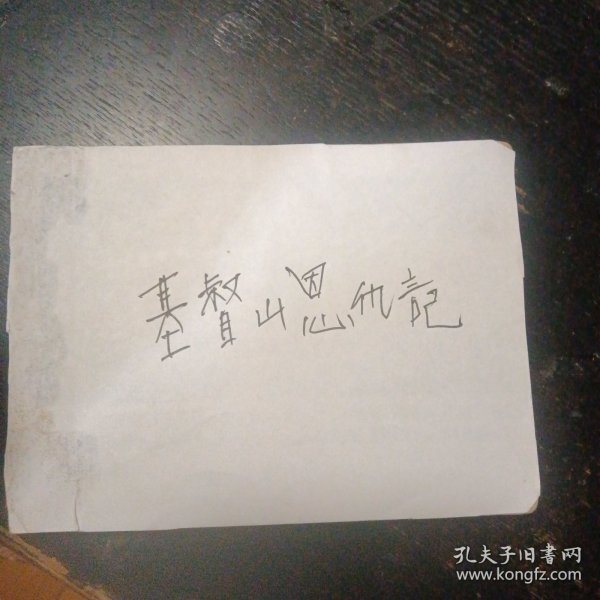 基督山恩仇記
孔夫子旧書网
www.kongfz.com